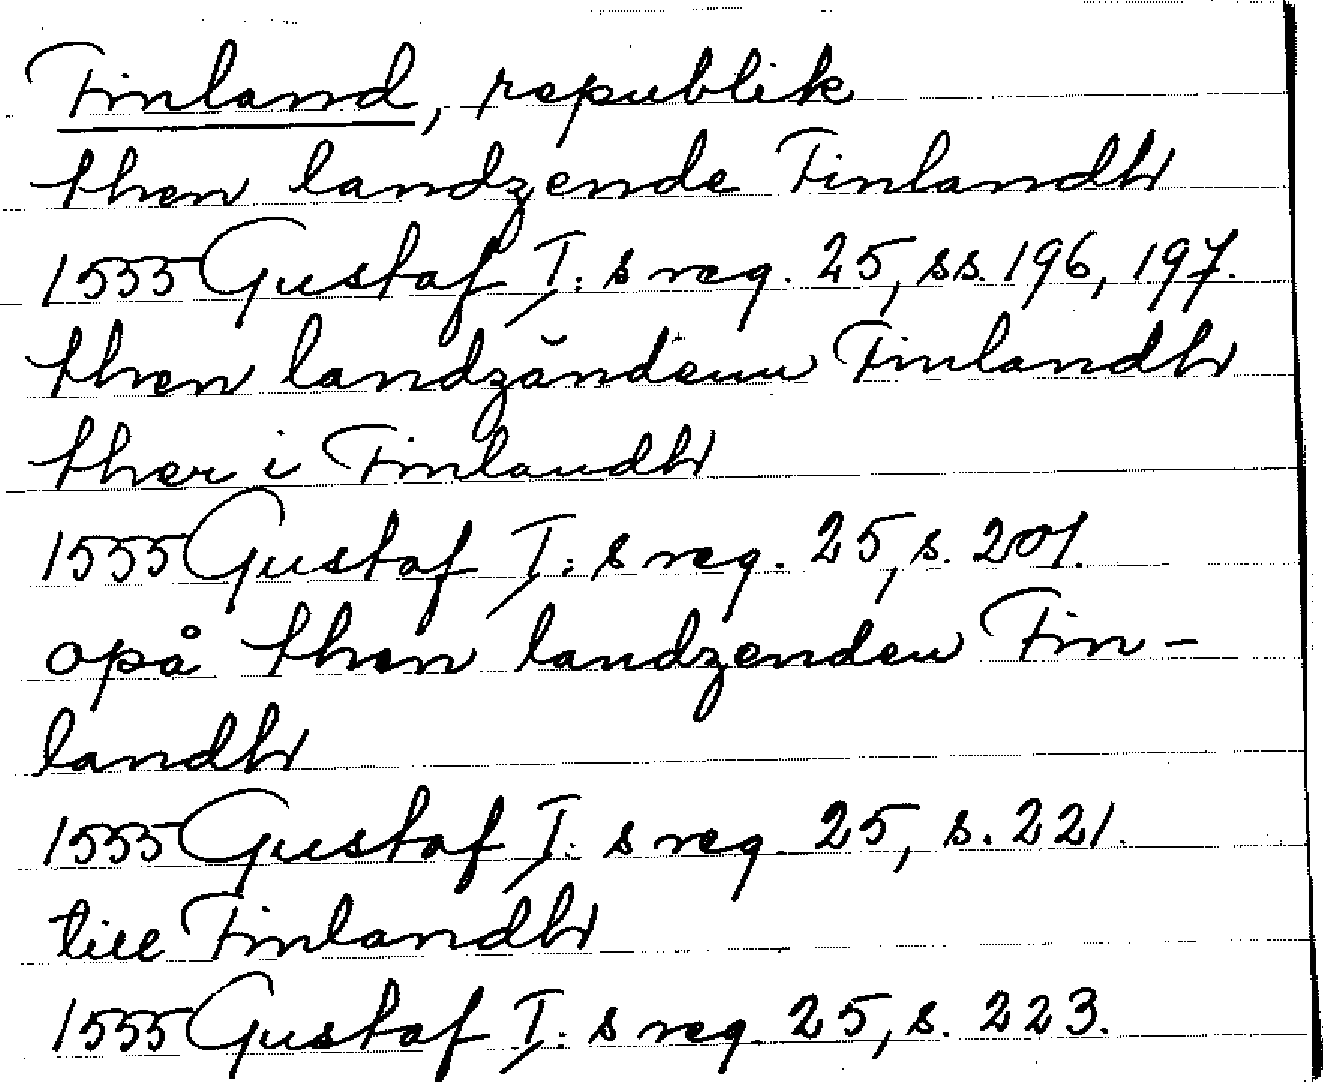 Finland, republik
then landzende Finlandh
1555 Gustaf I:s reg. 25, ss. 196, 197.
then landzändenn Finlandh
ther i Finlandh
1555 Gustaf I:s reg. 25, s. 201.
opå then landzenden Fin-
landh
1555 Gustaf I:s reg. 25, s. 221.
till Finlandh
1555 Gustaf I:s reg. 25, s. 223.